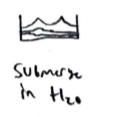 Submerse
in H20